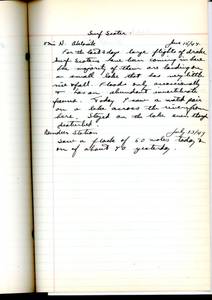 Surf Scoter
mi N. Aklavik June 15/47
For the last 3 days large flights of drake
Surf Scoters have been coming in here
the majority of them are landing on
a small lake that has very little
rise & fall. Floods only occasionally
& has an abundant invertebrate
fauna. Today I saw a mated pair
on a lake across the river from
here. Stayed on the lake even though
disturbed.
Reindeer Station July 23/47
Saw a flock of 50 males today &
on of about 70 yesterday.